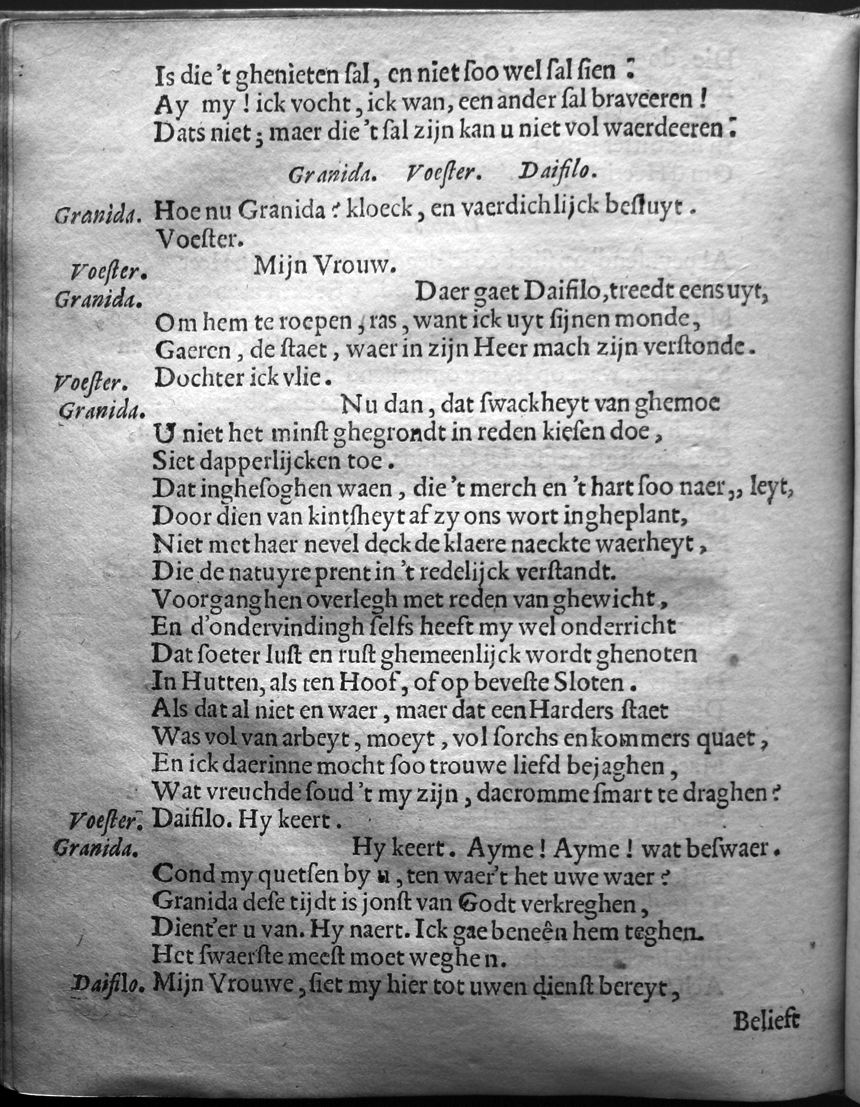 Is die 't ghenieten ſal, en niet ſoo wel ſal ſien ?
Ay my ! ick vocht, ick wan, een ander ſal braveeren !
Dats niet; maer die 't ſal zijn kan u niet vol waerdeeren ?
Granida. Voeſter. Daifilo.
Granida. Hoe nu Granida ? kloeck, en vaerdichlijck beſluyt.
Voeſter.
Voeſter. Mijn Vrouw.
Granida. Daer gaet Daifilo, treedt eens uyt,
Om hem te roepen, ras, want ick uyt ſijnen monde,
Gaeren, de ſtaet, waer in zijn Heer mach zijn verſtonde.
Voeſter. Dochter ick vlie.
Granida. Nu dan, dat ſwackheyt van ghemoe
U niet het minſt ghegrondt in reden kieſen doe,
Siet dapperlijcken toe.
Dat inghеſoghen waen, die 't merch en 't hart ſoo naer,, leyt,
Door dien van kintſheyt af zy ons wort ingheplant,
Niet met haer nevel deck de klaere naeckte waerheyt,
Die de natuyre prent in 't redelijck verſtandt.
Voorganghen overlegh met reden van ghewicht,
En d'ondervindingh ſelfs heeft my wel onderricht
Dat ſoeter luſt en ruſt ghemeenlijck wordt ghenoten
In Hutten, als ten Hoof, of op beveſte Sloten.
Als dat al niet en waer, maer dat een Harders ſtaet
Was vol van arbeyt, moeyt, vol ſorchs en kommers quaet,
En ick daerinne mocht ſoo trouwe liefd bejaghen,
Wat vreuchde ſoud 't my zijn, daeromme ſmart te draghen ?
Voeſter. Daifilo. Hy keert.
Granida. Hy keert. Ayme ! Ayme ! wat beſwaer.
Cond my quetſen by u, ten waer't het uwe waer ?
Granida deſe tijdt is jonſt van Godt verkreghen,
Dient'er u van. Hy naert. Ick gae beneên hem teghen.
Het ſwaerſte meeſt moet weghen.
Daifilo. Mijn Vrouwe, ſiet my hier tot uwen dienſt bereyt,
Belieft